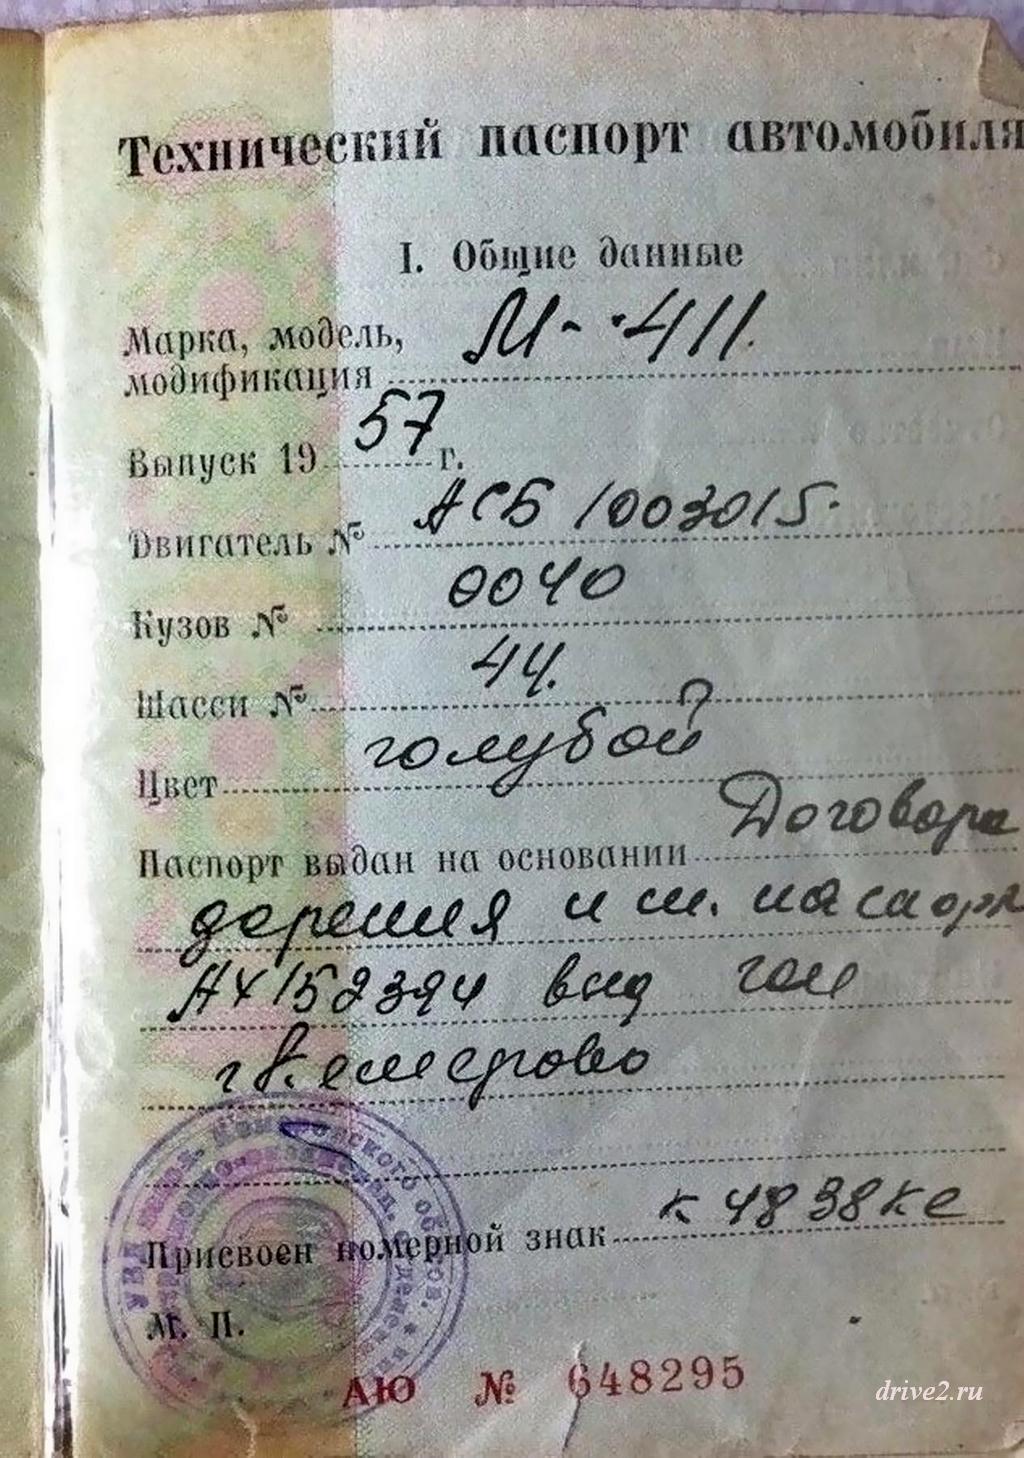 Технический паспорт автомобиля
I. Общие данные
Марка, модель,
модификация М-411.
Выпуск 1957 г.
Двигатель № АСБ 1003015.
Кузов № 0040
Шасси № 44.
Цвет голубой
Паспорт выдан на основании Договора
дарения и т. паспорт
АХ152394 выд гаи
г Кемерово
Присвоен номерной знак к 4838 ке
М. П.
АЮ № 648295
drive2.ru
УВД Кемеровского